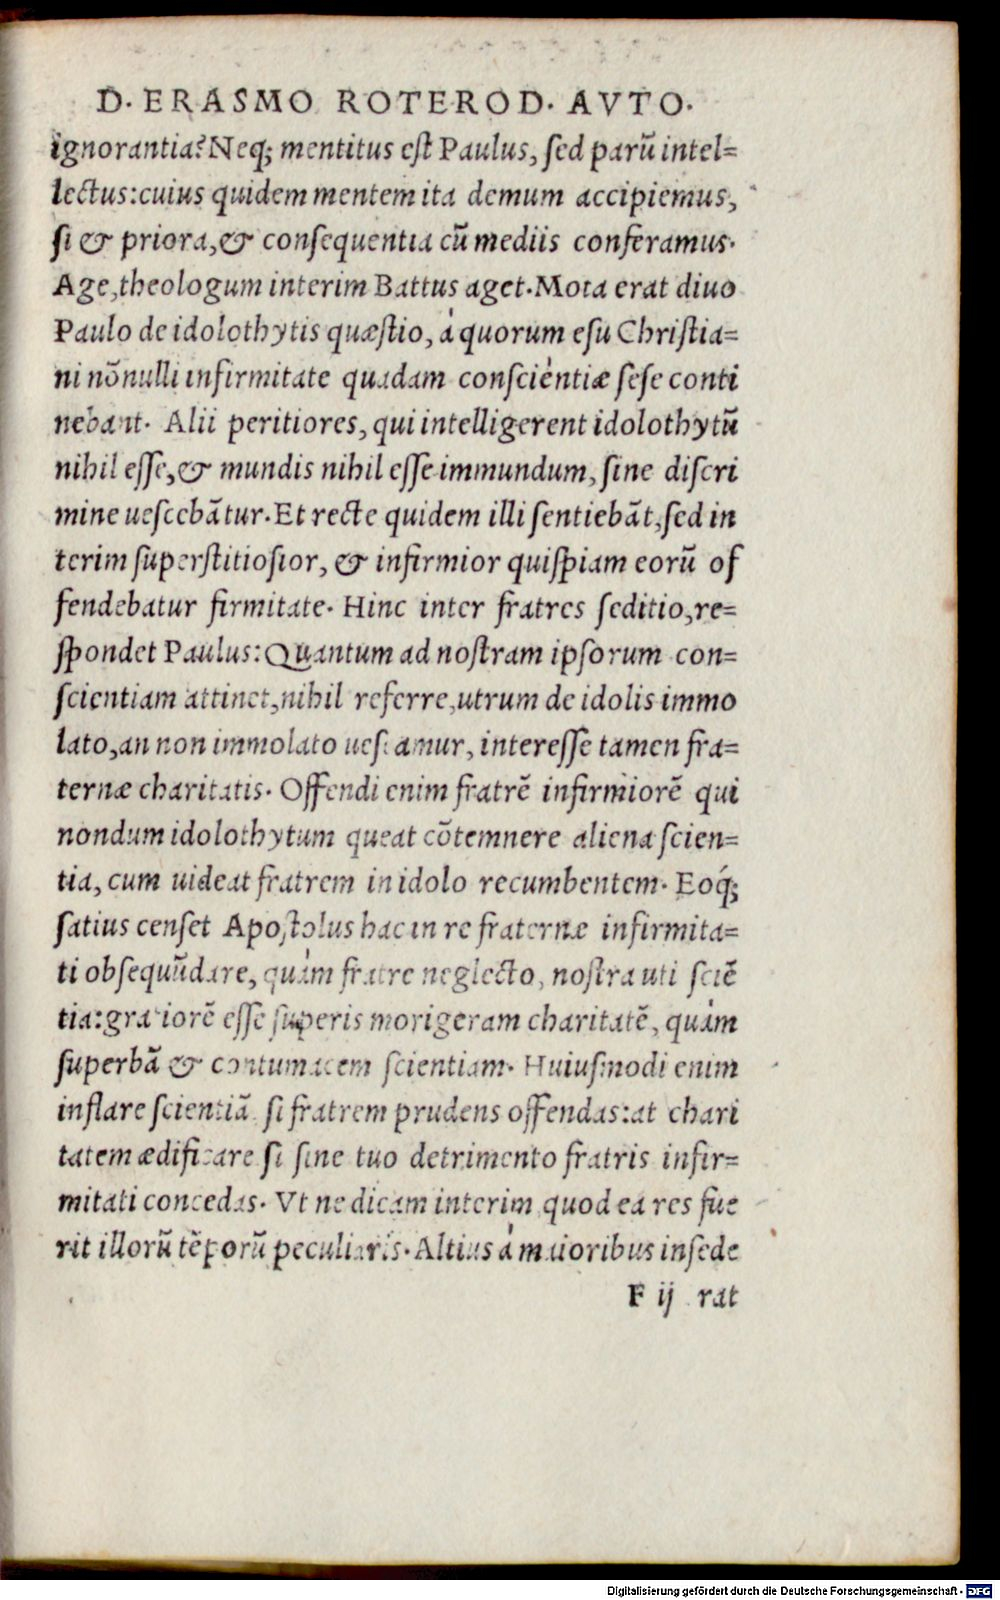 D. ERASMO ROTEROD. AVTO.
ignorantia? Neq; mentitus est Paulus, sed parū intel=
lectus: cuius quidem mentem ita demum accipiemus,
si & priora, & consequentia cū mediis conferamus.
Age, theologum interim Battus aget. Mota erat diuo
Paulo de idolothytis quæstio, à quorum esu Christia=
ni nōnulli infirmitate quadam conscientiæ sese conti
nebant. Alii peritiores, qui intelligerent idolothytū
nihil esse, & mundis nihil esse immundum, sine discri
mine uescebātur. Et recte quidem illi sentiebāt, sed in
terim superstitiosior, & infirmior quispiam eorū of
fendebatur firmitate. Hinc inter fratres seditio, re=
spondet Paulus: Quantum ad nostram ipsorum con=
scientiam attinet, nihil referre, utrum de idolis immo
lato, an non immolato uescamur, interesse tamen fra=
ternæ charitatis. Offendi enim fratrē infirmiorē qui
nondum idolothytum queat cōtemnere aliena scien=
tia, cum uideat fratrem in idolo recumbentem. Eoq́;
satius censet Apostolus hac in re fraternæ infirmita=
ti obsequūdare, quàm fratre neglecto, nostra uti sciē
tia: gratiorē esse superis morigeram charitatē, quàm
superbā & contumacem scientiam. Huiusmodi enim
inflare scientiā si fratrem prudens offendas: at chari
tatem ædificare si sine tuo detrimento fratris infir=
mitati concedas. Vt ne dicam interim quod ea res fue
rit illorū tēporū peculiaris. Altius à maioribus insede
F ij rat
Digitalisierung gefördert durch die Deutsche Forschungsgemeinschaft - DFG